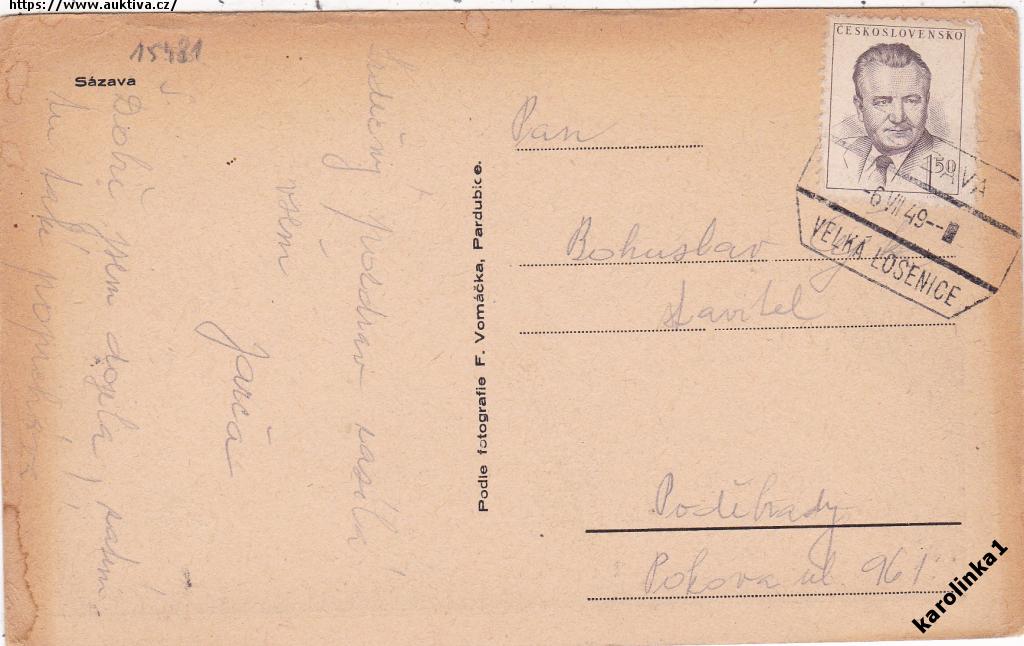 https://www.auktiva.cz/
15431
Sázava
Srdečný pozdrav zasílá
všem
Jarča
Dobře jsem dojela,
Podle fotografie F. Vomáčka, Pardubice.
ČESKOSLOVENSKO
150
-6.VII.49--
VELKÁ LOSENICE
Pan
Bohuslav
stavitel
Poděbrady
ul. 961
karolinka1